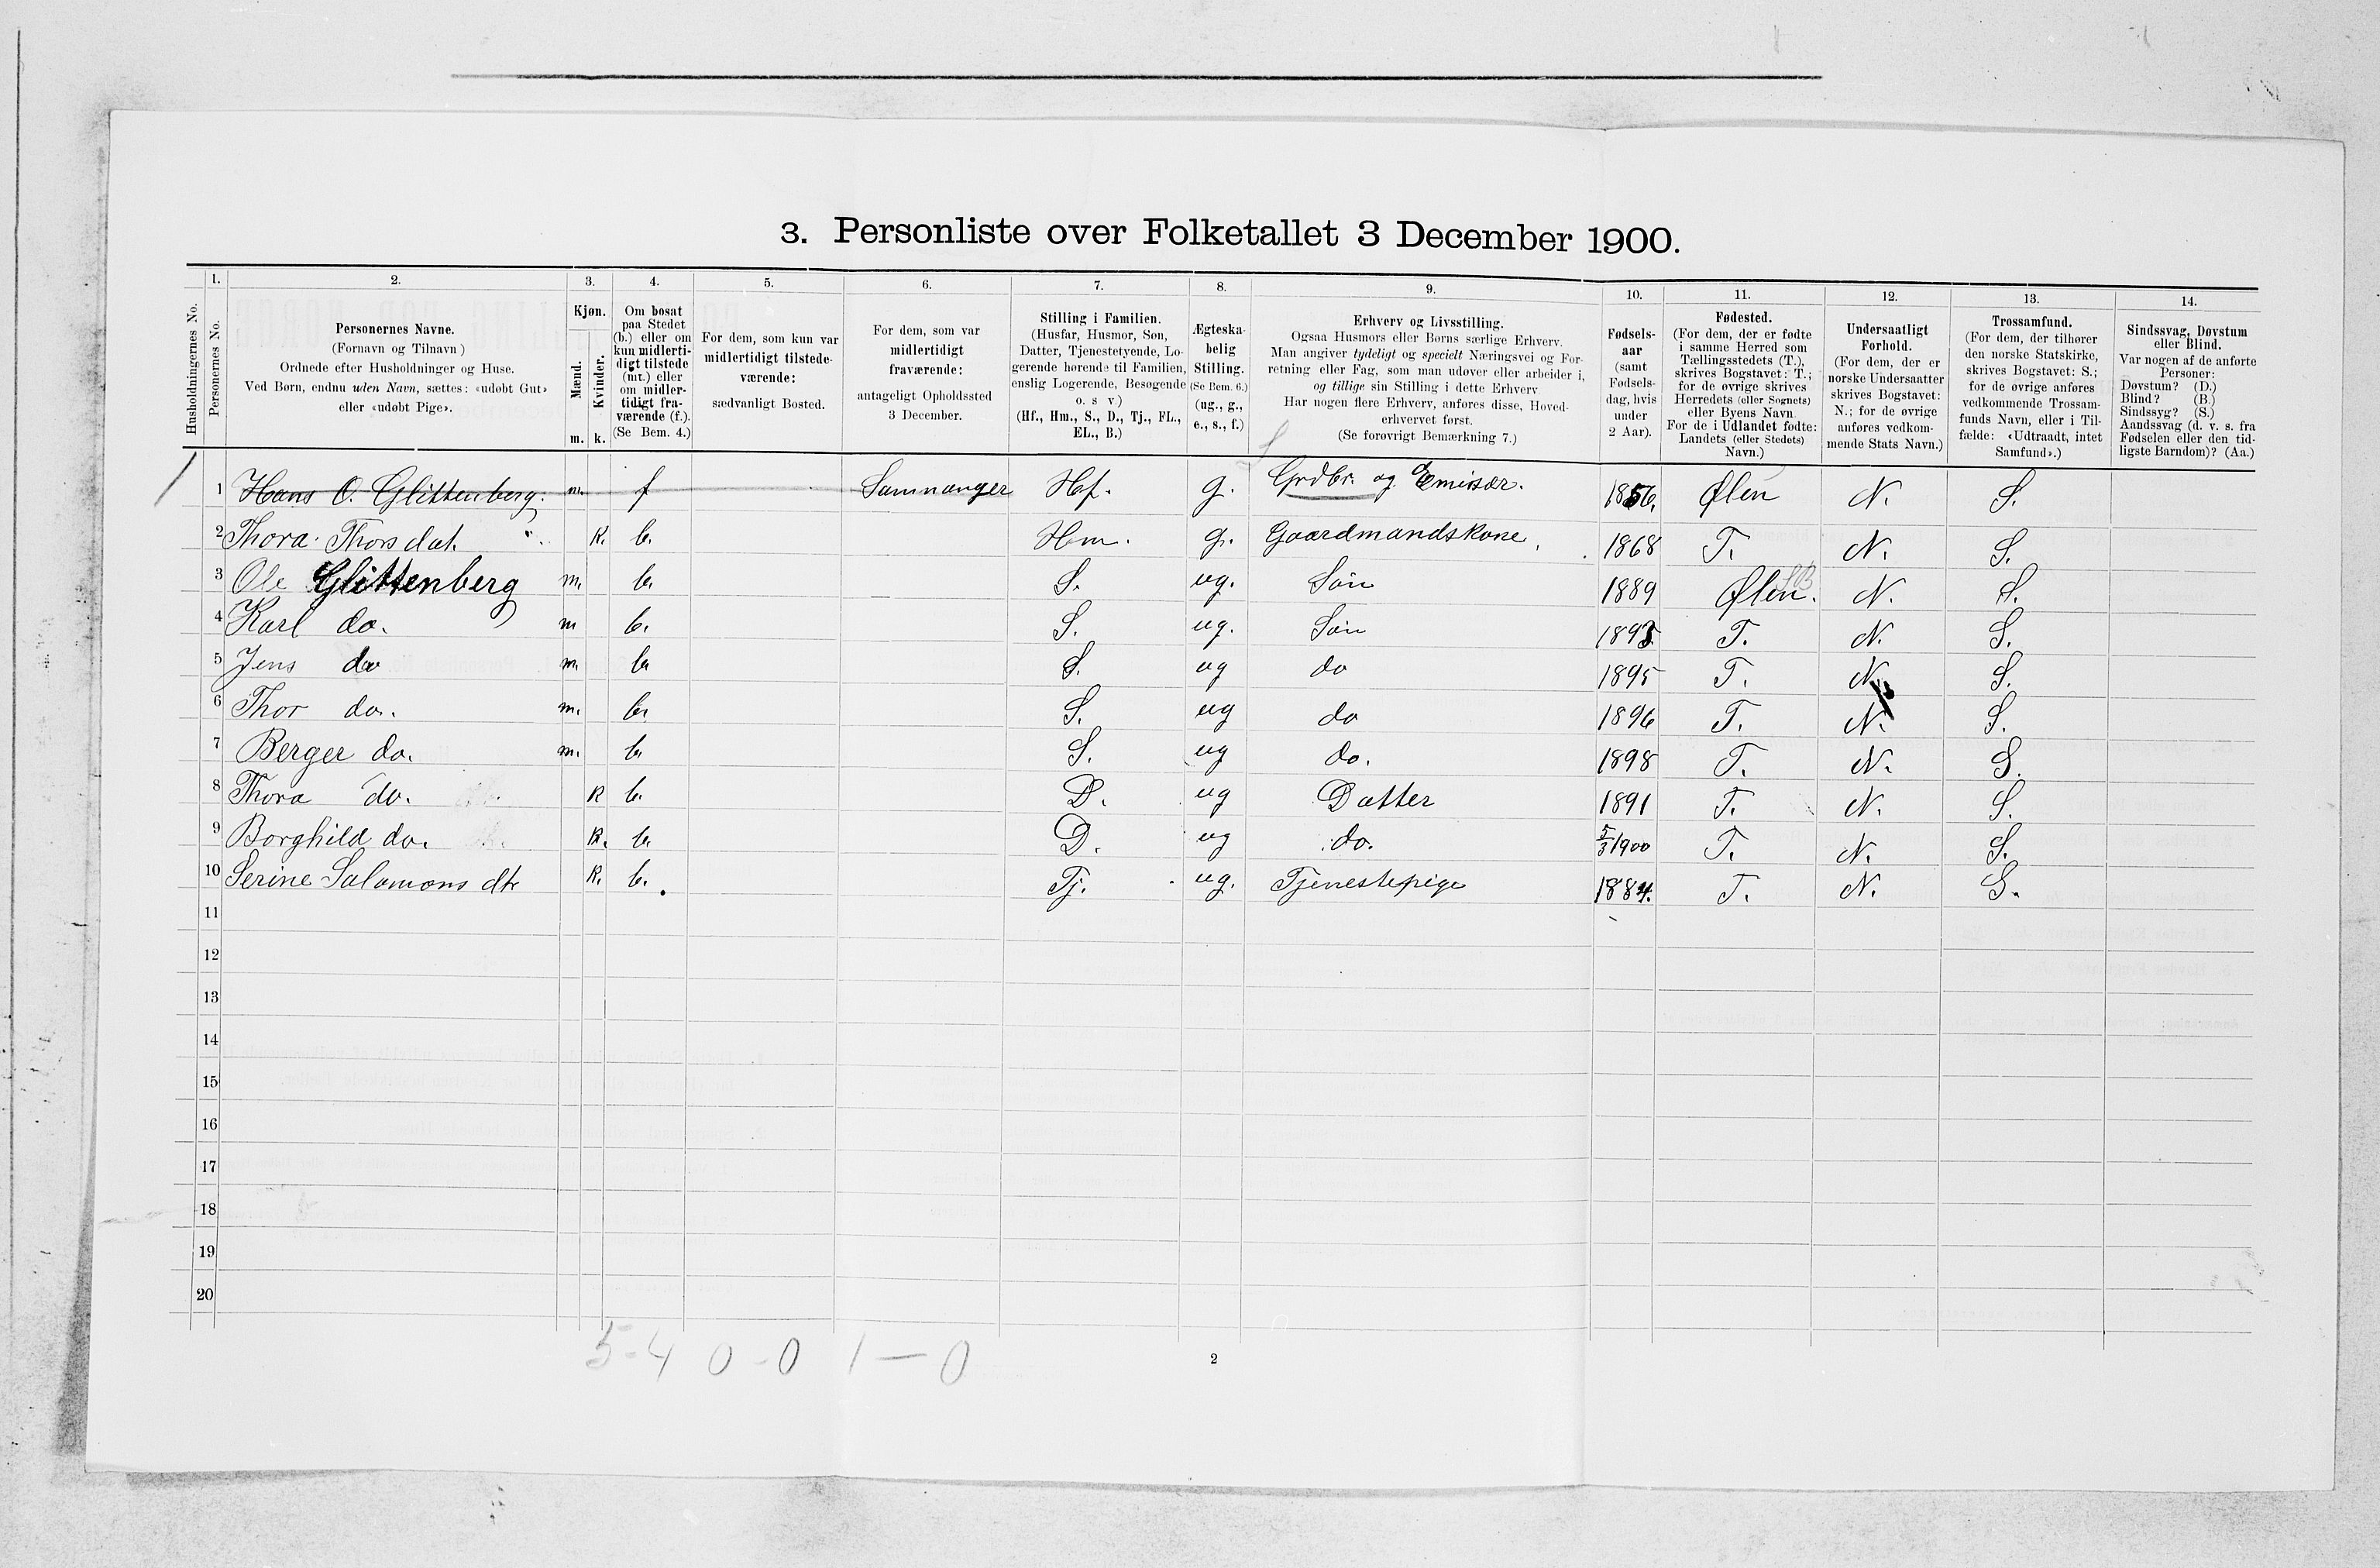 3. Personliste over Folketallet 3 December 1900.
1. 2. 3. 4. 5. 6. 7. 8. 9. 10. 11. 12. 13. 14.
Husholdningernes No.
Personernes No.
Personernes Navne.
(Fornavn og Tilnavn)
Ordnede efter Husholdninger og Huse.
Ved Børn, endnu uden Navn, sættes: «udøbt Gut»
eller «udøbt Pige».
Kjøn.
Mænd.
Kvinder.
m. k.
Om bosat
paa Stedet
(b.) eller om
kun midlerti-
digt tilstede
(mt.) eller
om midler-
tidigt fra-
værende (f.).
(Se Bem. 4.)
For dem, som kun var
midlertidigt tilstede-
værende:
sædvanligt Bosted.
For dem, som var
midlertidigt
fraværende:
antageligt Opholdssted
3 December.
Stilling i Familien.
(Husfar, Husmor, Søn,
Datter, Tjenestetyende, Lo-
gerende hørende til Familien,
enslig Logerende, Besøgende
o. s v.)
(Hf., Hm., S., D., Tj., FL.,
EL., B.)
Ægteska-
belig
Stilling.
(Se Bem. 6.)
(ug., g.,
e., s., f.)
Erhverv og Livsstilling.
Ogsaa Husmors eller Børns særlige Erhverv.
Man angiver tydeligt og specielt Næringsvei og For-
retning eller Fag, som man udøver eller arbeider i,
og tillige sin Stilling i dette Erhverv
Har nogen flere Erhverv, anføres disse, Hoved-
erhvervet først.
(Se forøvrigt Bemærkning 7.)
Fødsels-
aar
(samt
Fødsels-
dag, hvis
under
2 Aar).
Fødested.
(For dem, der er fødte
i samme Herred som
Tællingsstedets (T.),
skrives Bogstavet: T.;
for de øvrige skrives
Herredets (eller Sognets)
eller Byens Navn
For de i Udlandet fødte:
Landets (eller Stedets)
Navn.)
Undersaatligt
Forhold.
(For dem, der er
norske Undersaatter
skrives Bogstavet:
N.; for de øvrige
anføres vedkom-
mende Stats Navn.)
Trossamfund.
(For dem, der tilhører
den norske Statskirke,
skrives Bogstavet: S.;
for de øvrige anføres
vedkommende Trossam-
funds Navn, eller i Til-
fælde: «Udtraadt, intet
Samfund».)
Sindssvag, Døvstum
eller Blind.
Var nogen af de anførte
Personer:
Døvstum? (D.)
Blind? (B.)
Sindssyg? (S.)
Aandssvag (d. v. s. fra
Fødselen eller den tid-
ligste Barndom)? (Aa.)
1 Hans O. Glittenberg. m. f Samnanger Hf. g. Grdbr. og Emisær. 1856. Ølen N. S.
2 Thora Thorsdat. " K. b. Hm. g. Gaardmandskone. 1868 T. N. S.
3 Ole Glittenberg m. b. S. ug. Søn 1889 Ølen. N. S.
4 Karl do. m b. S. ug. Søn 1893. T. N. S.
5 Jens do m. b. S. ug do 1895 T. N. S.
6 Thor do. m. b. S. ug do 1896 T. N. S.
7 Berger do. m. b. S. ug do. 1898 T. N. S.
8 Thora do. K b. D. ug Datter 1891 T. N. S.
9 Borghild do. K. b. D. ug do. 5/3 1900 T. N. S.
10 Serine Salomons dtr K. b. Tj. ug. Tjenestepige 1884. T. N. S.
11
12
13
14
15
16
17
18
19
20
5-4 0-0 1-0
2